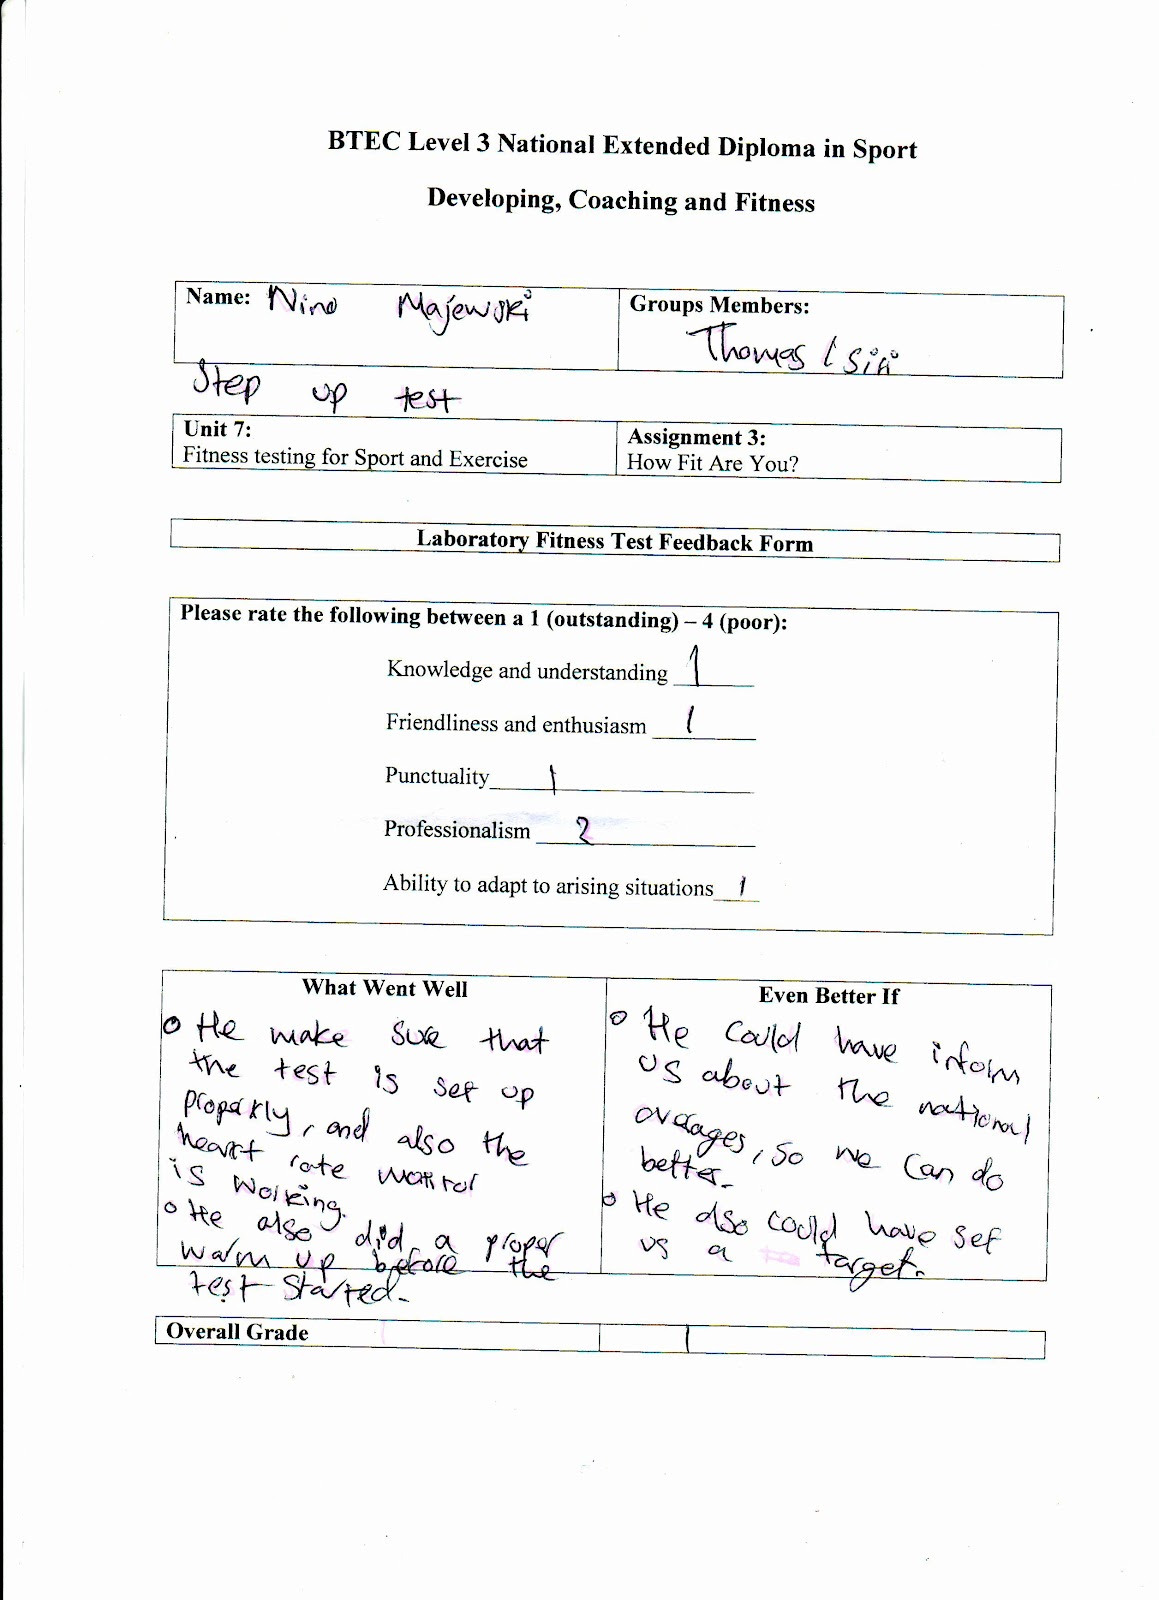 BTEC Level 3 National Extended Diploma in Sport
Developing, Coaching and Fitness
Name: Nino Majewski
Groups Members:
Thomas / Siri
Step up test
Unit 7:
Fitness testing for Sport and Exercise
Assignment 3:
How Fit Are You?
Laboratory Fitness Test Feedback Form
Please rate the following between a 1 (outstanding) – 4 (poor):
Knowledge and understanding 1
Friendliness and enthusiasm 1
Punctuality 1
Professionalism 2
Ability to adapt to arising situations 1
What Went Well
He make sure that
the test is set up
, and also the
heart rate
is working.
He also did a proper
warm up before the
test started.
Even Better If
He could have inform
us about the national
, so we can do
better.
He also could have set
us a target.
Overall Grade 1